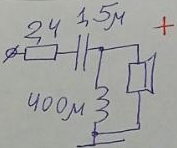 2,4
1,5м
+
400м